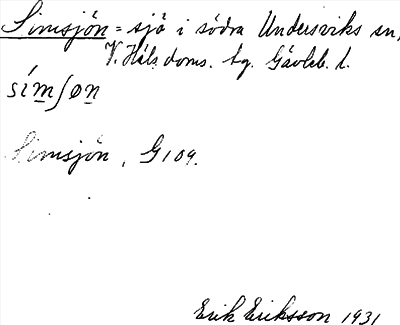 Simsjön = sjö i södra Undersviks sn,
V. Häls. doms. tg. Gävleb. l.
símʃøn
Simsjön, G109.
Erik Eriksson 1931